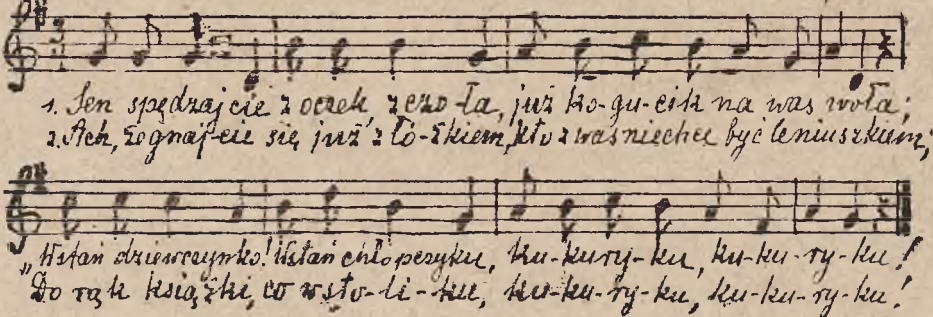 1. Sen spędzajcie z oczek z czo-ła, już ko-gu-cik na was woła;
2. Ach, żegnaj-cie się już z łó-żkiem, kto z was niechce być leniuszkiem,
"Wstań dziewczynko! Wstań chłopczyku, ku-kury-ku, ku-ku-ry-ku!
Do rąk książki, co w sto-li-ku, ku-ku-ry-ku, ku-ku-ry-ku!